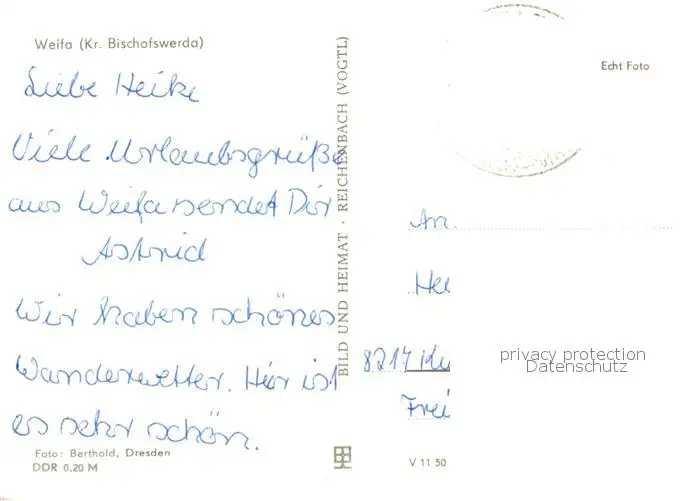 Weifa (Kr. Bischofswerda)
Liebe Heike
Viele Urlaubsgrüße
aus Weifa sendet Dir
Astrid
Wir haben schönes
Wanderwetter. Hier ist
es sehr schön.
Foto: Berthold, Dresden
DDR 0,20 M
BILD UND HEIMAT · REICHENBACH (VOGTL)
V 11 50
Echt Foto
An
Hei
8217 Ku
Frei
privacy protection
Datenschutz